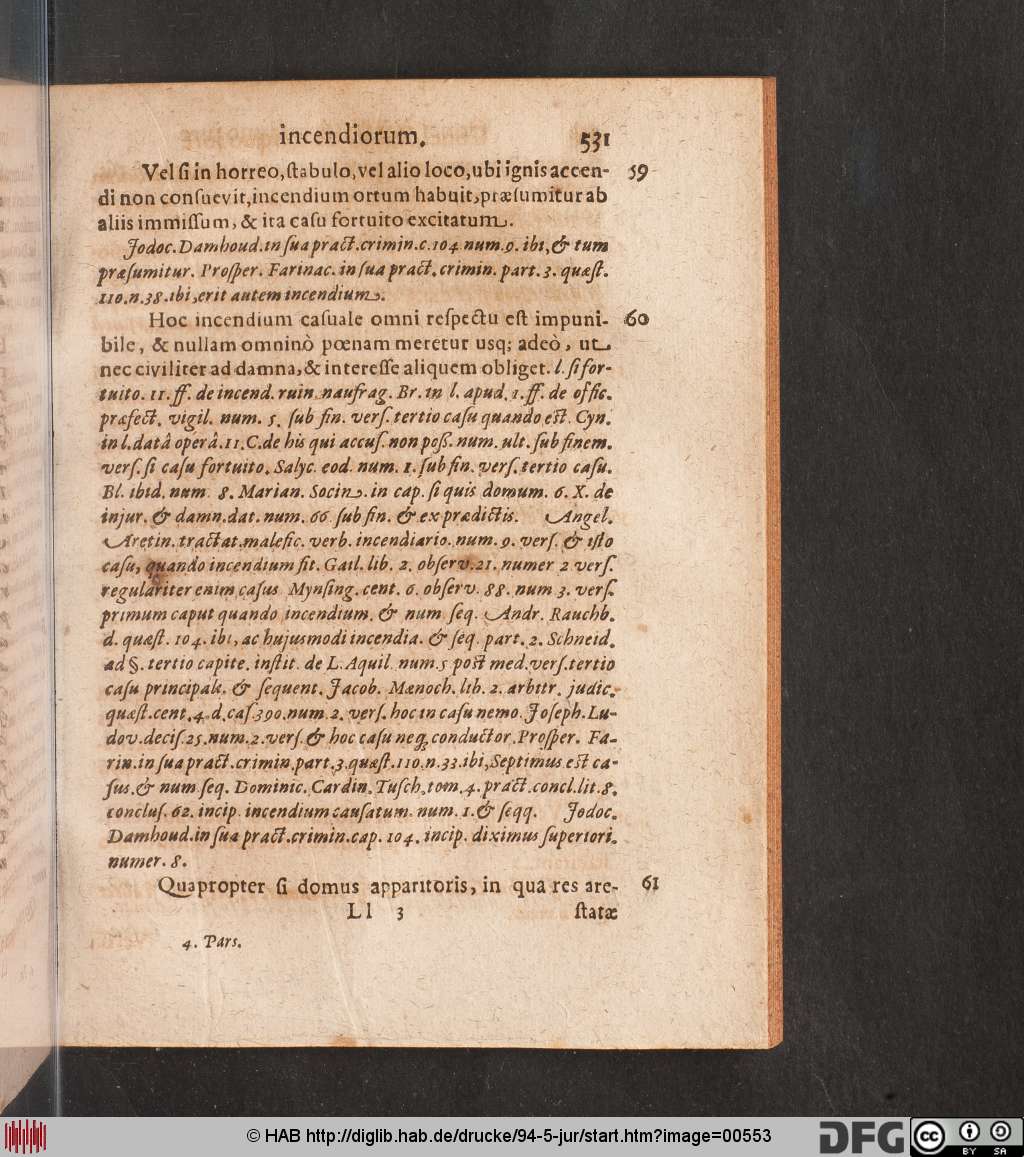 incendiorum. 531
Vel ſi in horreo, ſtabulo, vel alio loco, ubi ignis accen- 59
di non conſuevit, incendium ortum habuit, præſumitur ab
aliis immiſſum, & ita caſu fortuito excitatum.
Jodoc. Damhoud. in ſua pract. crimin. c. 104 num. 9. ibi, & tum
præſumitur. Proſper. Farinac. in ſua pract. crimin. part. 3. quæſt.
110. n. 38. ibi, erit autem incendium.
Hoc incendium caſuale omni reſpectu eſt impuni- 60
bile, & nullam omninò pœnam meretur usq; adeò, ut
nec civiliter ad damna, & intereſſe aliquem obliget. l. ſi for-
tuito. 11. ff. de incend. ruin. naufrag. Br. in l. apud. 1. ff. de offic.
præfect. vigil. num. 5. ſub fin. verſ. tertio caſu quando eſt. Cyn.
in l. datâ operâ. 11. C. de his qui accuſ. non poß. num. ult. ſub finem.
verſ. ſi caſu fortuito. Salyc. eod. num. 1. ſub fin. verſ. tertio caſu.
Bl. ibid. num. 8. Marian. Socin. in cap. ſi quis domum. 6. X. de
injur. & damn. dat. num. 66 ſub fin. & ex prædictis. Angel.
Aretin. tractat. malefic. verb. incendiario. num. 9. verſ. & iſto
caſu, quando incendium ſit. Gail. lib. 2. obſerv. 21. numer 2 verſ.
regulariter enim caſus Mynſing. cent. 6. obſerv. 88. num 3. verſ.
primum caput quando incendium. & num ſeq. Andr. Rauchb.
d. quæſt. 104. ibi, ac hujusmodi incendia. & ſeq. part. 2. Schneid.
ad §. tertio capite. inſtit. de L. Aquil. num. 5 poſt med. verſ. tertio
caſu principale. & ſequent. Jacob. Mænoch. lib. 2. arbitr. judic.
quæſt. cent. 4. d. caſ 390. num. 2. verſ. hoc in caſu nemo. Joſeph. Lu-
dov. deciſ. 25. num. 2. verſ. & hoc caſu neq; conductor. Proſper. Fa-
rin. in ſua pract. crimin. part. 3. quæſt. 110. n. 33. ibi, Septimus eſt ca-
ſus. & num ſeq. Dominic. Cardin. Tuſch. tom. 4. pract. concl. lit. 8.
concluſ. 62. incip. incendium cauſatum. num. 1. & ſeqq. Jodoc.
Damhoud. in ſua pract. crimin. cap. 104. incip. diximus ſuperiori.
numer. 8.
Quapropter ſi domus apparitoris, in qua res are- 61
Ll 3 ſtatæ
4. Pars.
© HAB http://diglib.hab.de/drucke/94-5-jur/start.htm?image=00553
DFG cc BY SA